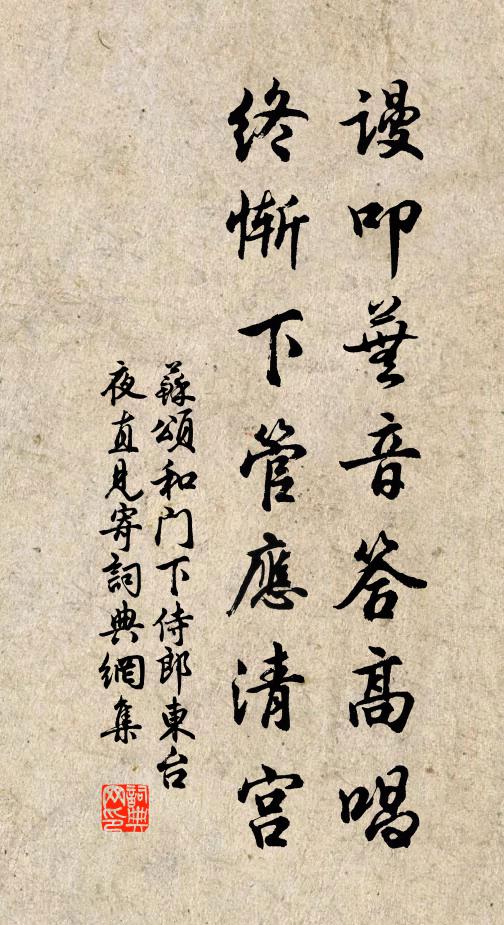 謾叩蕪音答高唱
終慚下管應清宮
蘇頌和门下侍郎東台
夜直見寄詞典網集
詞典
网印